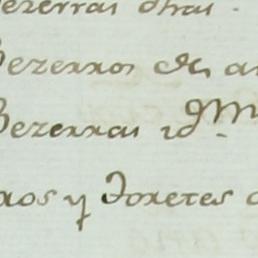 Bezerras dhas.
Bezerros de a
Bezerras id.
ros y Toretes